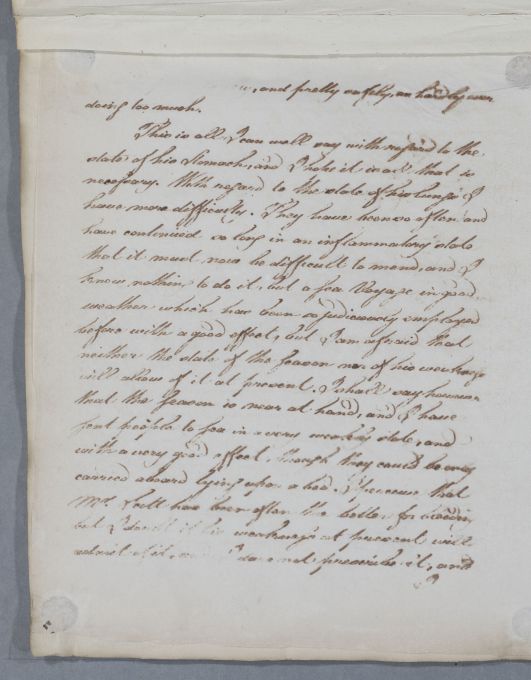 and pretty safely, as hardly ever
doing too much.
This is all I can well say with regard to the
state of his Stomach, and I hope it is all that is
necessary. With regard to the state of his lungs I
have more difficulty. They have been so often and
have continued so long in an inflammatory state
that it must now be difficult to mend, and I
know nothing to do it, but a sea Voyage in good
weather which has been so judiciously employed
before with a good effect, but I am afraid that
neither the state of the Season nor of his weakness
will allow of it at present. I shall say however
that the Season is near at hand, and I have
sent people to sea in a very weakly state, and
with a very good effect, though they could be only
carried aboard lying upon a bed. I perceive that
Mr. has been often the better for bleeding
but I doubt if his weakness at present will
admit of it, and I dare not prescribe it, and
I